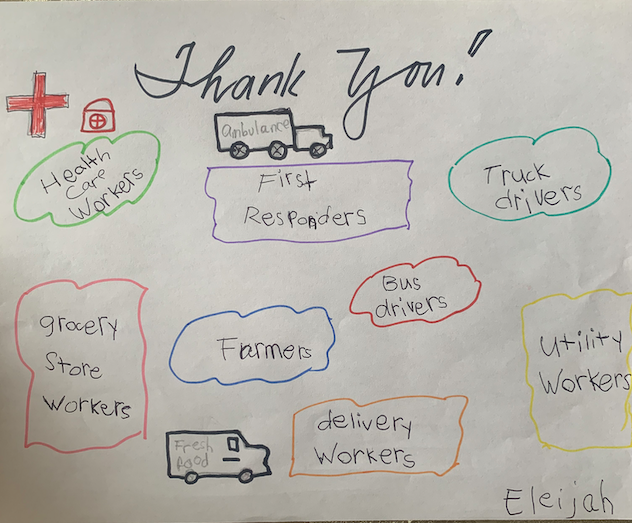 Thank You!
Ambulance
Health
Care
Workers
First
Responders
Truck
drivers
Bus
drivers
grocery
Store
Workers
Farmers
Utility
Workers
delivery
Workers
Fresh
food
Eleijah